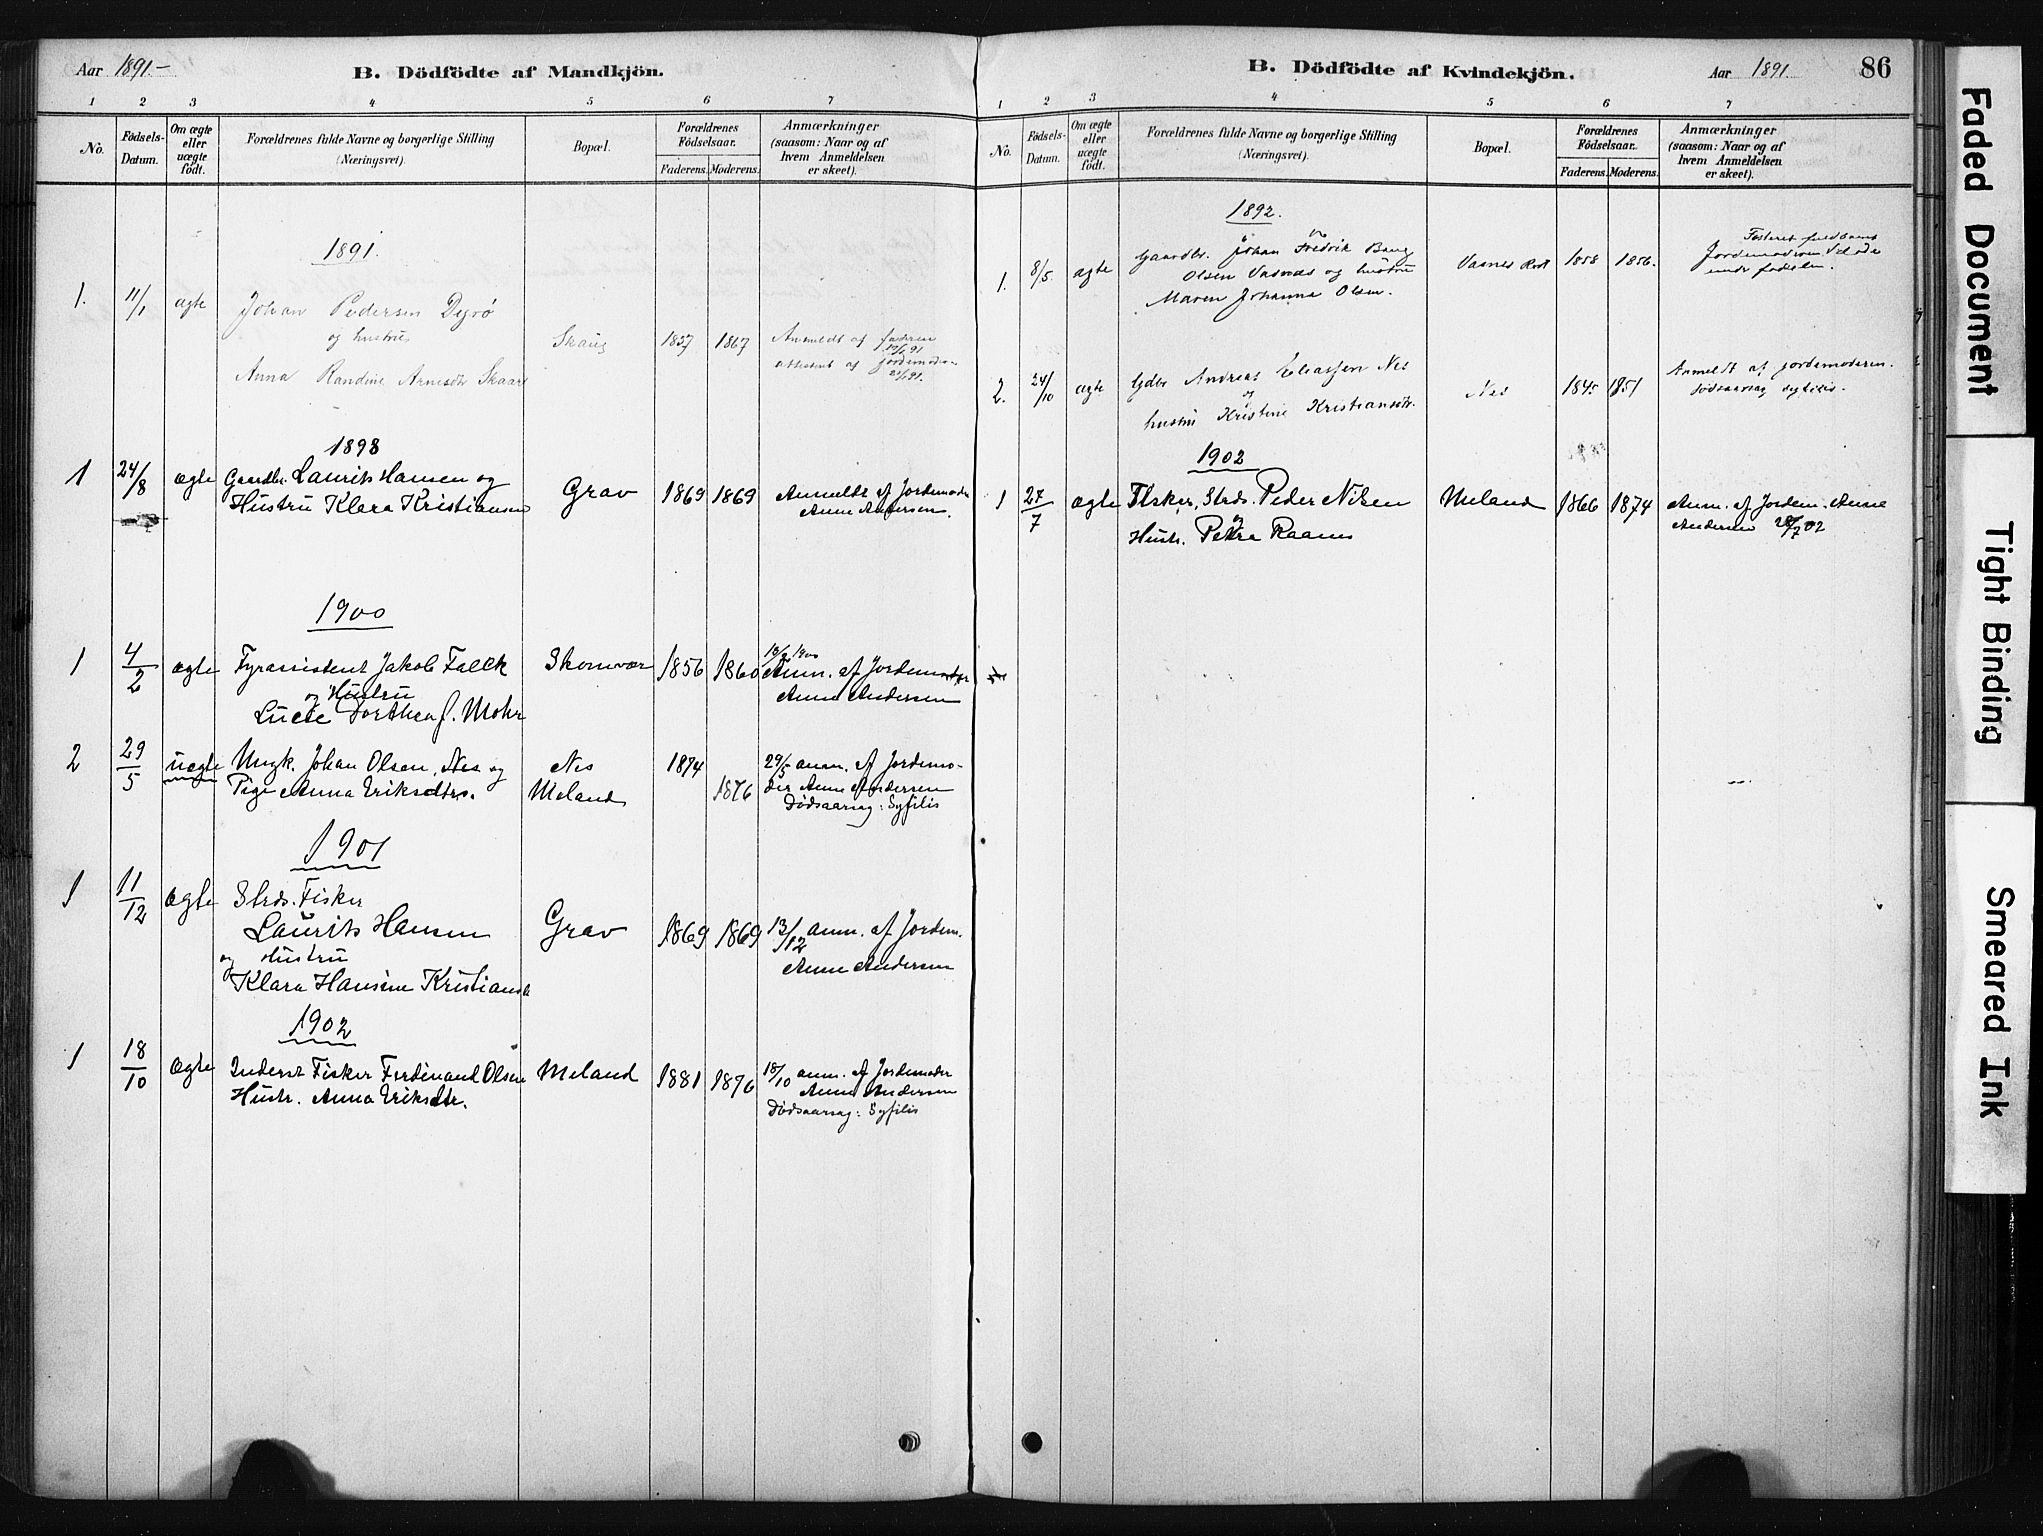 Aar 1891-
B. Dödfödte af Mandkjön.
1 2 3 4 5 6 7
No.
Födsels-
Datum.
Om ægte
eller
uægte
födt.
Forældrenes fulde Navne og borgerlige Stilling
(Næringsvei).
Bopæl.
Forældrenes
Födselsaar.
Faderens. Moderens.
Anmærkninger
(saasom: Naar og af
hvem Anmeldelsen
er skeet).
1891.
1. 11/1 ægte Johan Pedersen Dyrø
og hustru
Anna Randine Arnesdtr Skaare
Skaug 1857 1867
Anmeldt af faderen
attesteret af jordemoderen
1898
1 24/8 ægte Gaardbr. Laurits Hansen og
Hustru Klara Kristiansen
Grav 1869 1869
Anmeldt af Jordemoder
Anne Andersen.
1900
1 4/2 ægte Fyrassistent Jakob Falck
og Hustru
Lucie Dorthea f. Mohr
Skomvær 1856 1860
1900
Anm. af Jordemoder
Anne Andersen
2 29/5 uægte Ungk. Johan Olsen, Nes og
Pige Anna Eriksdtr.
Nes
Meland
1874
1876
29/5 anm. af Jordemo-
der Anne Andersen
Dødsaarsag: Syfilis
1901
1 11/12 ægte Strds. Fisker
Laurits Hansen
og Hustru
Klara Hansine Kristiansdr
Grav 1869 1869
13/12 anm. af Jordem.
Anne Andersen
1902
1 18/10 ægte Inderst Fisker Ferdinand Olsen
Hustr. Anna Eriksdtr.
Meland 1881 1876
18/10 anm. af Jordemoder
Anne Andersen
Dødsaarsag: Syfilis
B. Dödfödte af Kvindekjön.
Aar 1891
86
1 2 3 4 5 6 7
No.
Födsels-
Datum.
Om ægte
eller
uægte
födt.
Forældrenes fulde Navne og borgerlige Stilling
(Næringsvei).
Bopæl.
Forældrenes
Födselsaar.
Faderens. Moderens.
Anmærkninger
(saasom: Naar og af
hvem Anmeldelsen
er skeet).
1892.
1. 8/5. ægte Gaardbr. Johan Fredrik Bang
Olsen Vasnes og hustru
Maren Johanna Olsen.
Vasnes 1858 1856.
Fosteret fuldbaaret
Jordemoderen
under fødselen.
2. 24/10 ægte Gdbr Andreas Eliassen Nes
og
hustru Kristine Kristiansdtr.
Nes 1845 1851
Anmeldt af jordemoderen.
Dødsaarsag syfilis.
1902
1 27/7 ægte Fisker, Strds. Peder Nilsen
og
Hustr. Petra Raanes
Meland 1866 1874
Anm. af Jordem. Anne
Andersen 28/7 02
Faded Document
Tight Binding
Smeared Ink